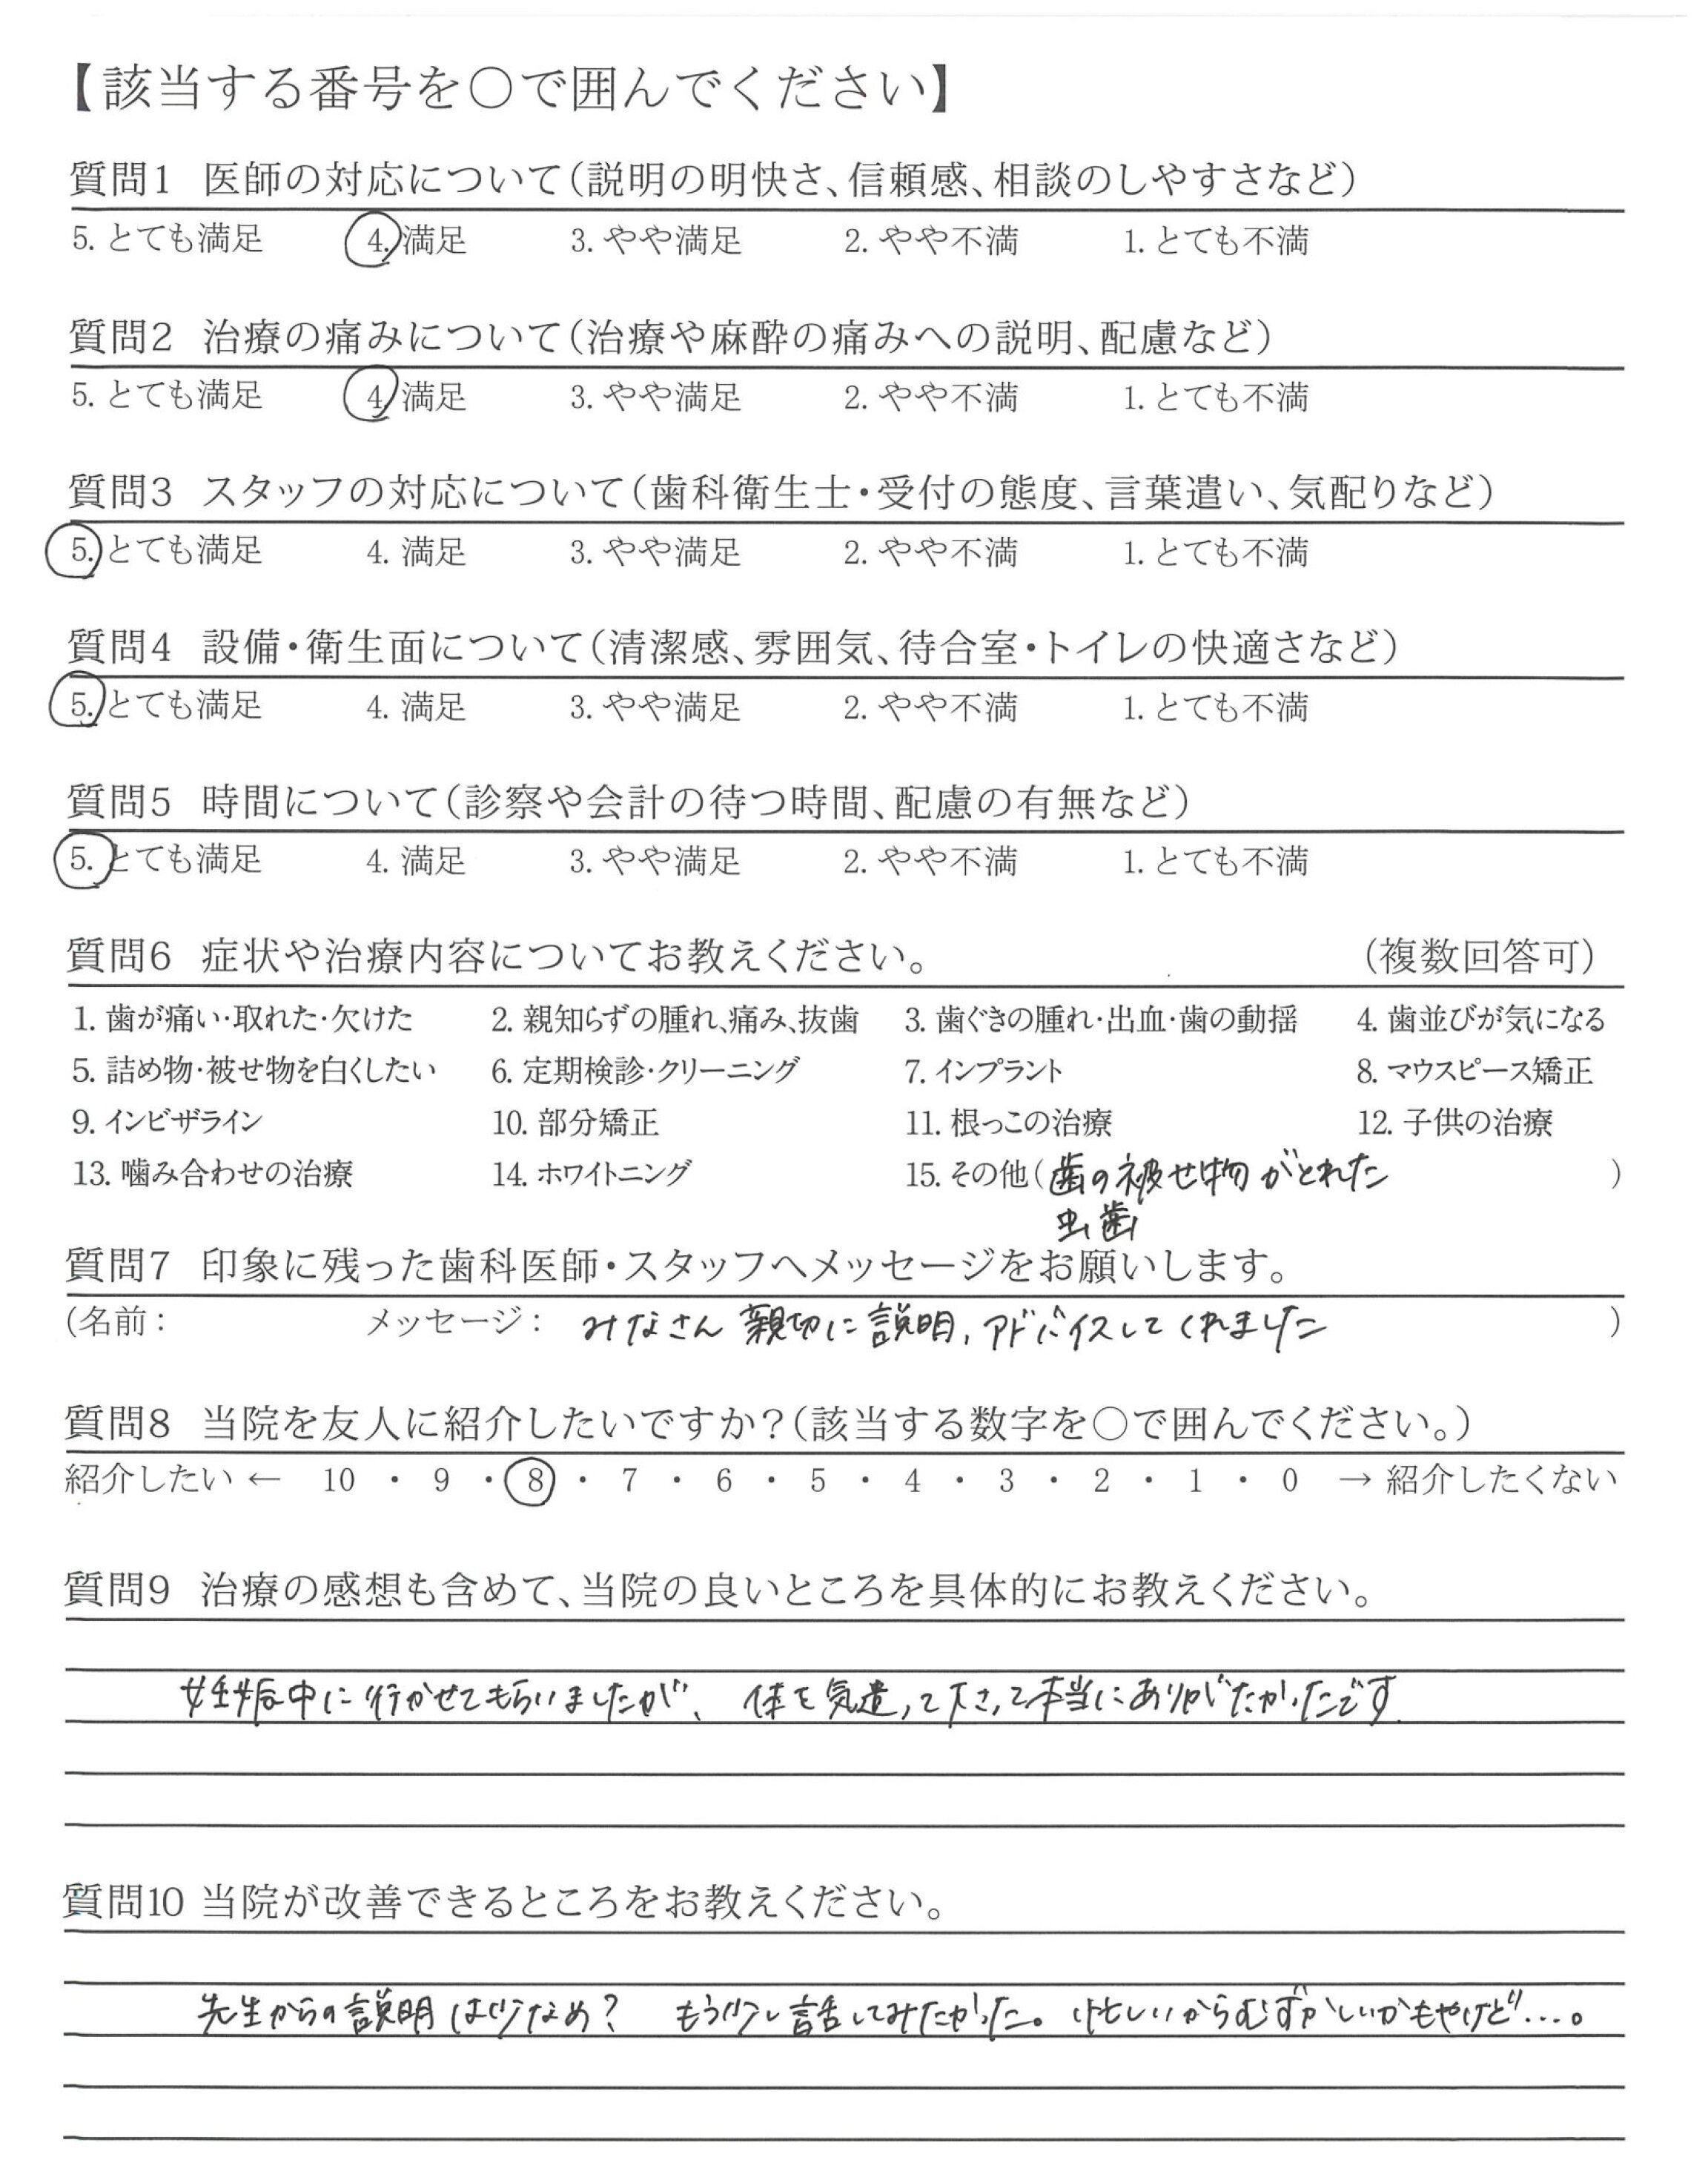 【該当する番号を○で囲んでください】
質問1 医師の対応について(説明の明快さ、信頼感、相談のしやすさなど)
5. とても満足 4. 満足 3. やや満足 2. やや不満 1. とても不満
質問2 治療の痛みについて(治療や麻酔の痛みへの説明、配慮など)
5. とても満足 4. 満足 3. やや満足 2. やや不満 1. とても不満
質問3 スタッフの対応について(歯科衛生士・受付の態度、言葉遣い、気配りなど)
5. とても満足 4. 満足 3. やや満足 2. やや不満 1. とても不満
質問4 設備・衛生面について(清潔感、雰囲気、待合室・トイレの快適さなど)
5. とても満足 4. 満足 3. やや満足 2. やや不満 1. とても不満
質問5 時間について(診察や会計の待つ時間、配慮の有無など)
5. とても満足 4. 満足 3. やや満足 2. やや不満 1. とても不満
質問6 症状や治療内容についてお教えください。 (複数回答可)
1. 歯が痛い・取れた・欠けた 2. 親知らずの腫れ、痛み、抜歯 3. 歯ぐきの腫れ・出血・歯の動揺 4. 歯並びが気になる
5. 詰め物・被せ物を白くしたい 6. 定期検診・クリーニング 7. インプラント 8. マウスピース矯正
9. インビザライン 10. 部分矯正 11. 根っこの治療 12. 子供の治療
13. 噛み合わせの治療 14. ホワイトニング 15. その他(歯の被せ物がとれた )
虫歯
質問7 印象に残った歯科医師・スタッフへメッセージをお願いします。
(名前: メッセージ: みなさん親切に説明、アドバイスしてくれました )
質問8 当院を友人に紹介したいですか?(該当する数字を○で囲んでください。)
紹介したい ← 10 ・ 9 ・ 8 ・ 7 ・ 6 ・ 5 ・ 4 ・ 3 ・ 2 ・ 1 ・ 0 → 紹介したくない
質問9 治療の感想も含めて、当院の良いところを具体的にお教えください。
妊娠中に行かせてもらいましたが、体を気遣って下さって本当にありがたかったです
質問10 当院が改善できるところをお教えください。
先生からの説明は少なめ? もう少し話してみたかった。忙しいからむずかしいかもやけど…。